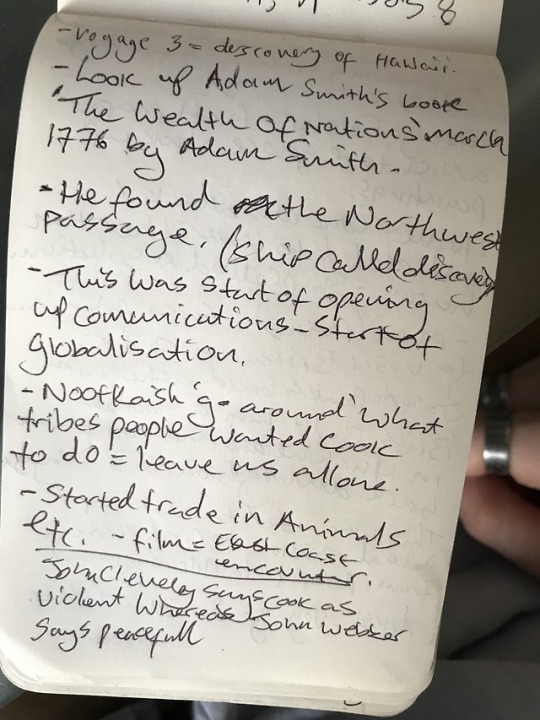 - voyage 3 = descovery of Hawaii.
- Look up Adam Smith's book
'The Wealth Of Nations' march
1776 by Adam Smith.
- He found the Northwest
passage. (ship called discovery
- This was start of opening
up comunications - start of
globalisation.
- Nootkaish 'g- around' what
tribes people wanted Cook
to do = leave us allone.
- Started trade in Animals
etc. - film = East Coast
encounter.
John Clevely says Cook as
violent whereas John Webber
says peacefull